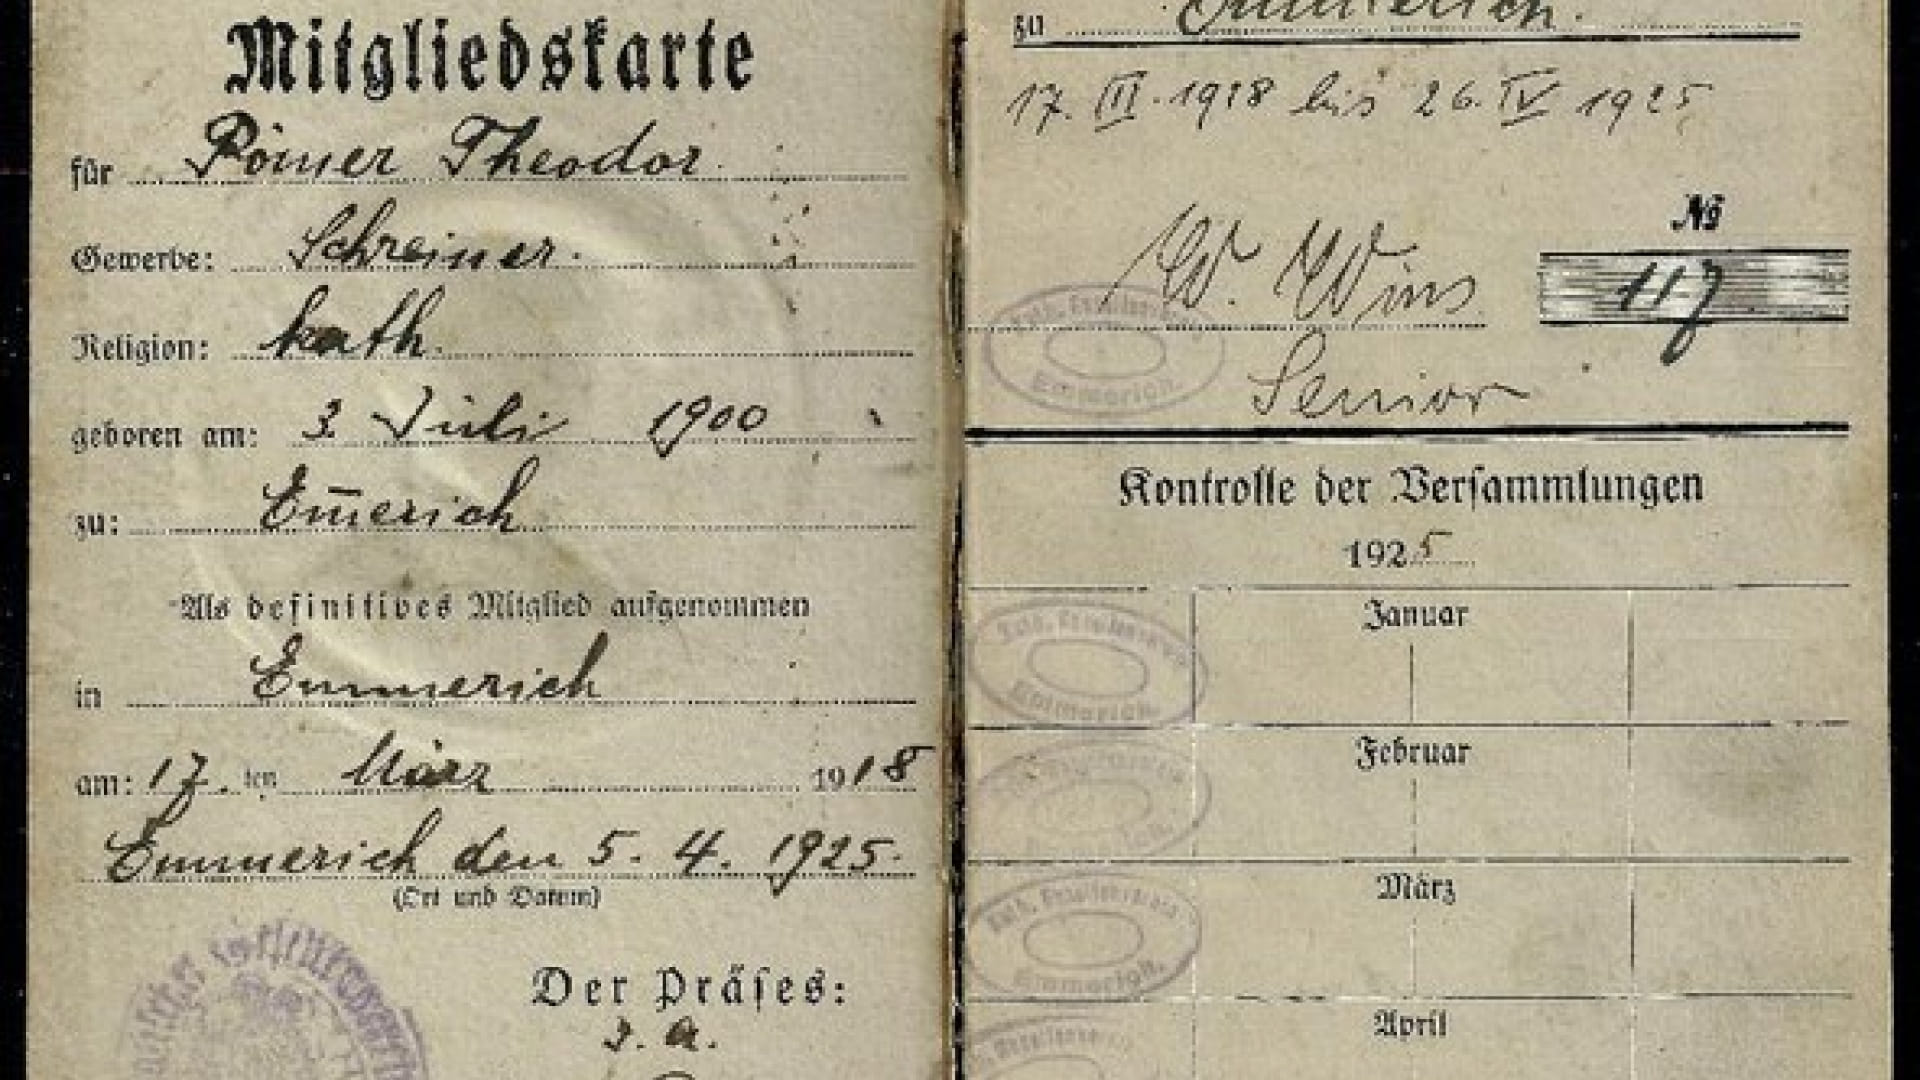 Mitgliedskarte
für Römer Theodor.
Gewerbe: Schreiner.
Religion: kath.
geboren am: 3. Juli 1900
zu: Em̄erich
Als definitives Mitglied aufgenommen
in Emmerich
am: 17. ten März 1918
Emmerich den 5. 4. 1925.
(Ort und Datum)
Der Präses:
J. A.
zu Emmerich.
17. III. 1918 bis 26. IV 1925
No
W. Wins 117
Kath. Gesellenverein Emmerich.
Senior
Kontrolle der Versammlungen
1925
Januar
Kath. Gesellenverein Emmerich.
Februar
März
Kath. Gesellenverein Emmerich.
April